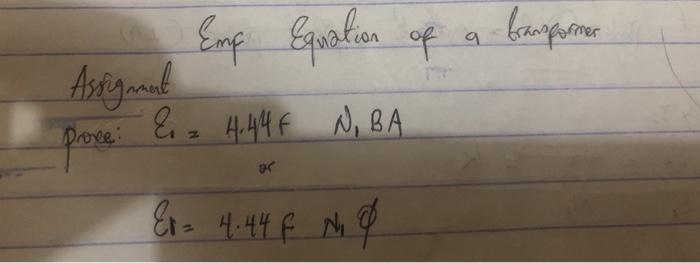 Emf Equation of a transformer
Assignment
prove: E₁ = 4.44f N₁ BA
or
E₁ = 4.44 f N₁ ϕ